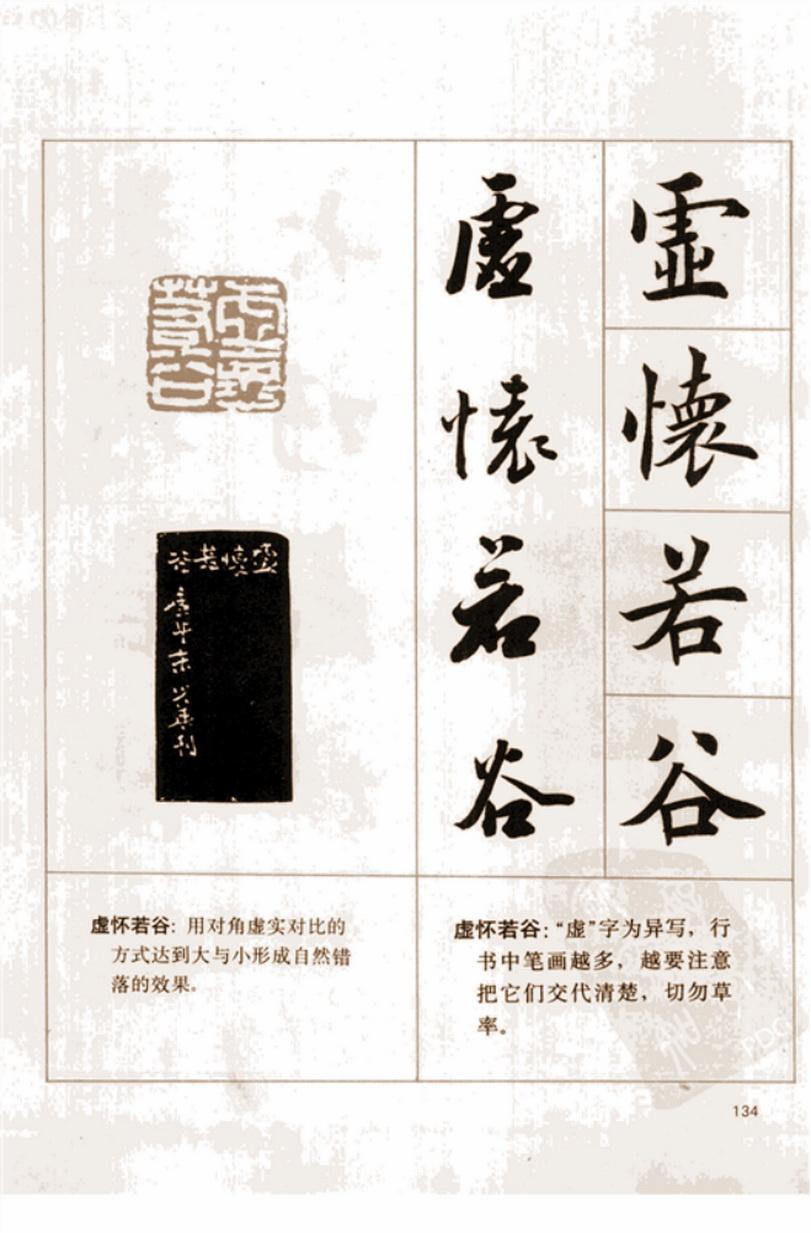 虛
懷
若
谷
虛
懷
若
谷
虚怀若谷
虚懷若
谷
刊
虚怀若谷：用对角虚实对比的
方式达到大与小形成自然错
落的效果。
虚怀若谷：“虚”字为异写，行
书中笔画越多，越要注意
把它们交代清楚，切勿草
率。
134
PDG